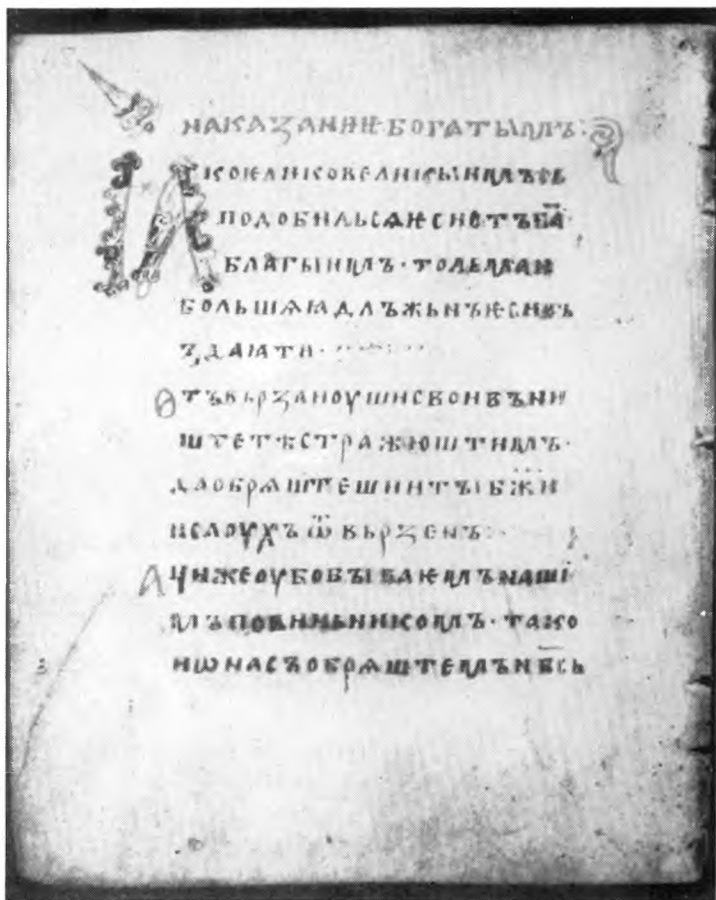 НАКАꙀАНИѤБОГАТЫМЪ:
ꙖКОѤЛИКОВЕЛИКЫИМЪСЪ
ПОДОБИЛЪСѦѤСИОТЪБ҃А·
БЛАГЫИМЪ·ТОЛЬМАИ
БОЛЬШѦꙖДЛЪЖЬНЪѤСИВЪ
ꙀДАꙖТИ·
ОТЪВЬРꙀАИОУШИСВОИВЪНИ
ШТЕТѢСТРАЖЮШТИМЪ·
ДАОБРѦШТЕШИИТЫБ҃ЖИ
ИСЛОУХЪѾВЬРꙀЕНЪ:
АЧИЖЕОУБОБЫВАѤМЪНАШИ
МЪПОВИНЬНИКОМЪ·ТАКО
ИѠНАСЪОБРѦШТЕМЪНБ҃СЬ